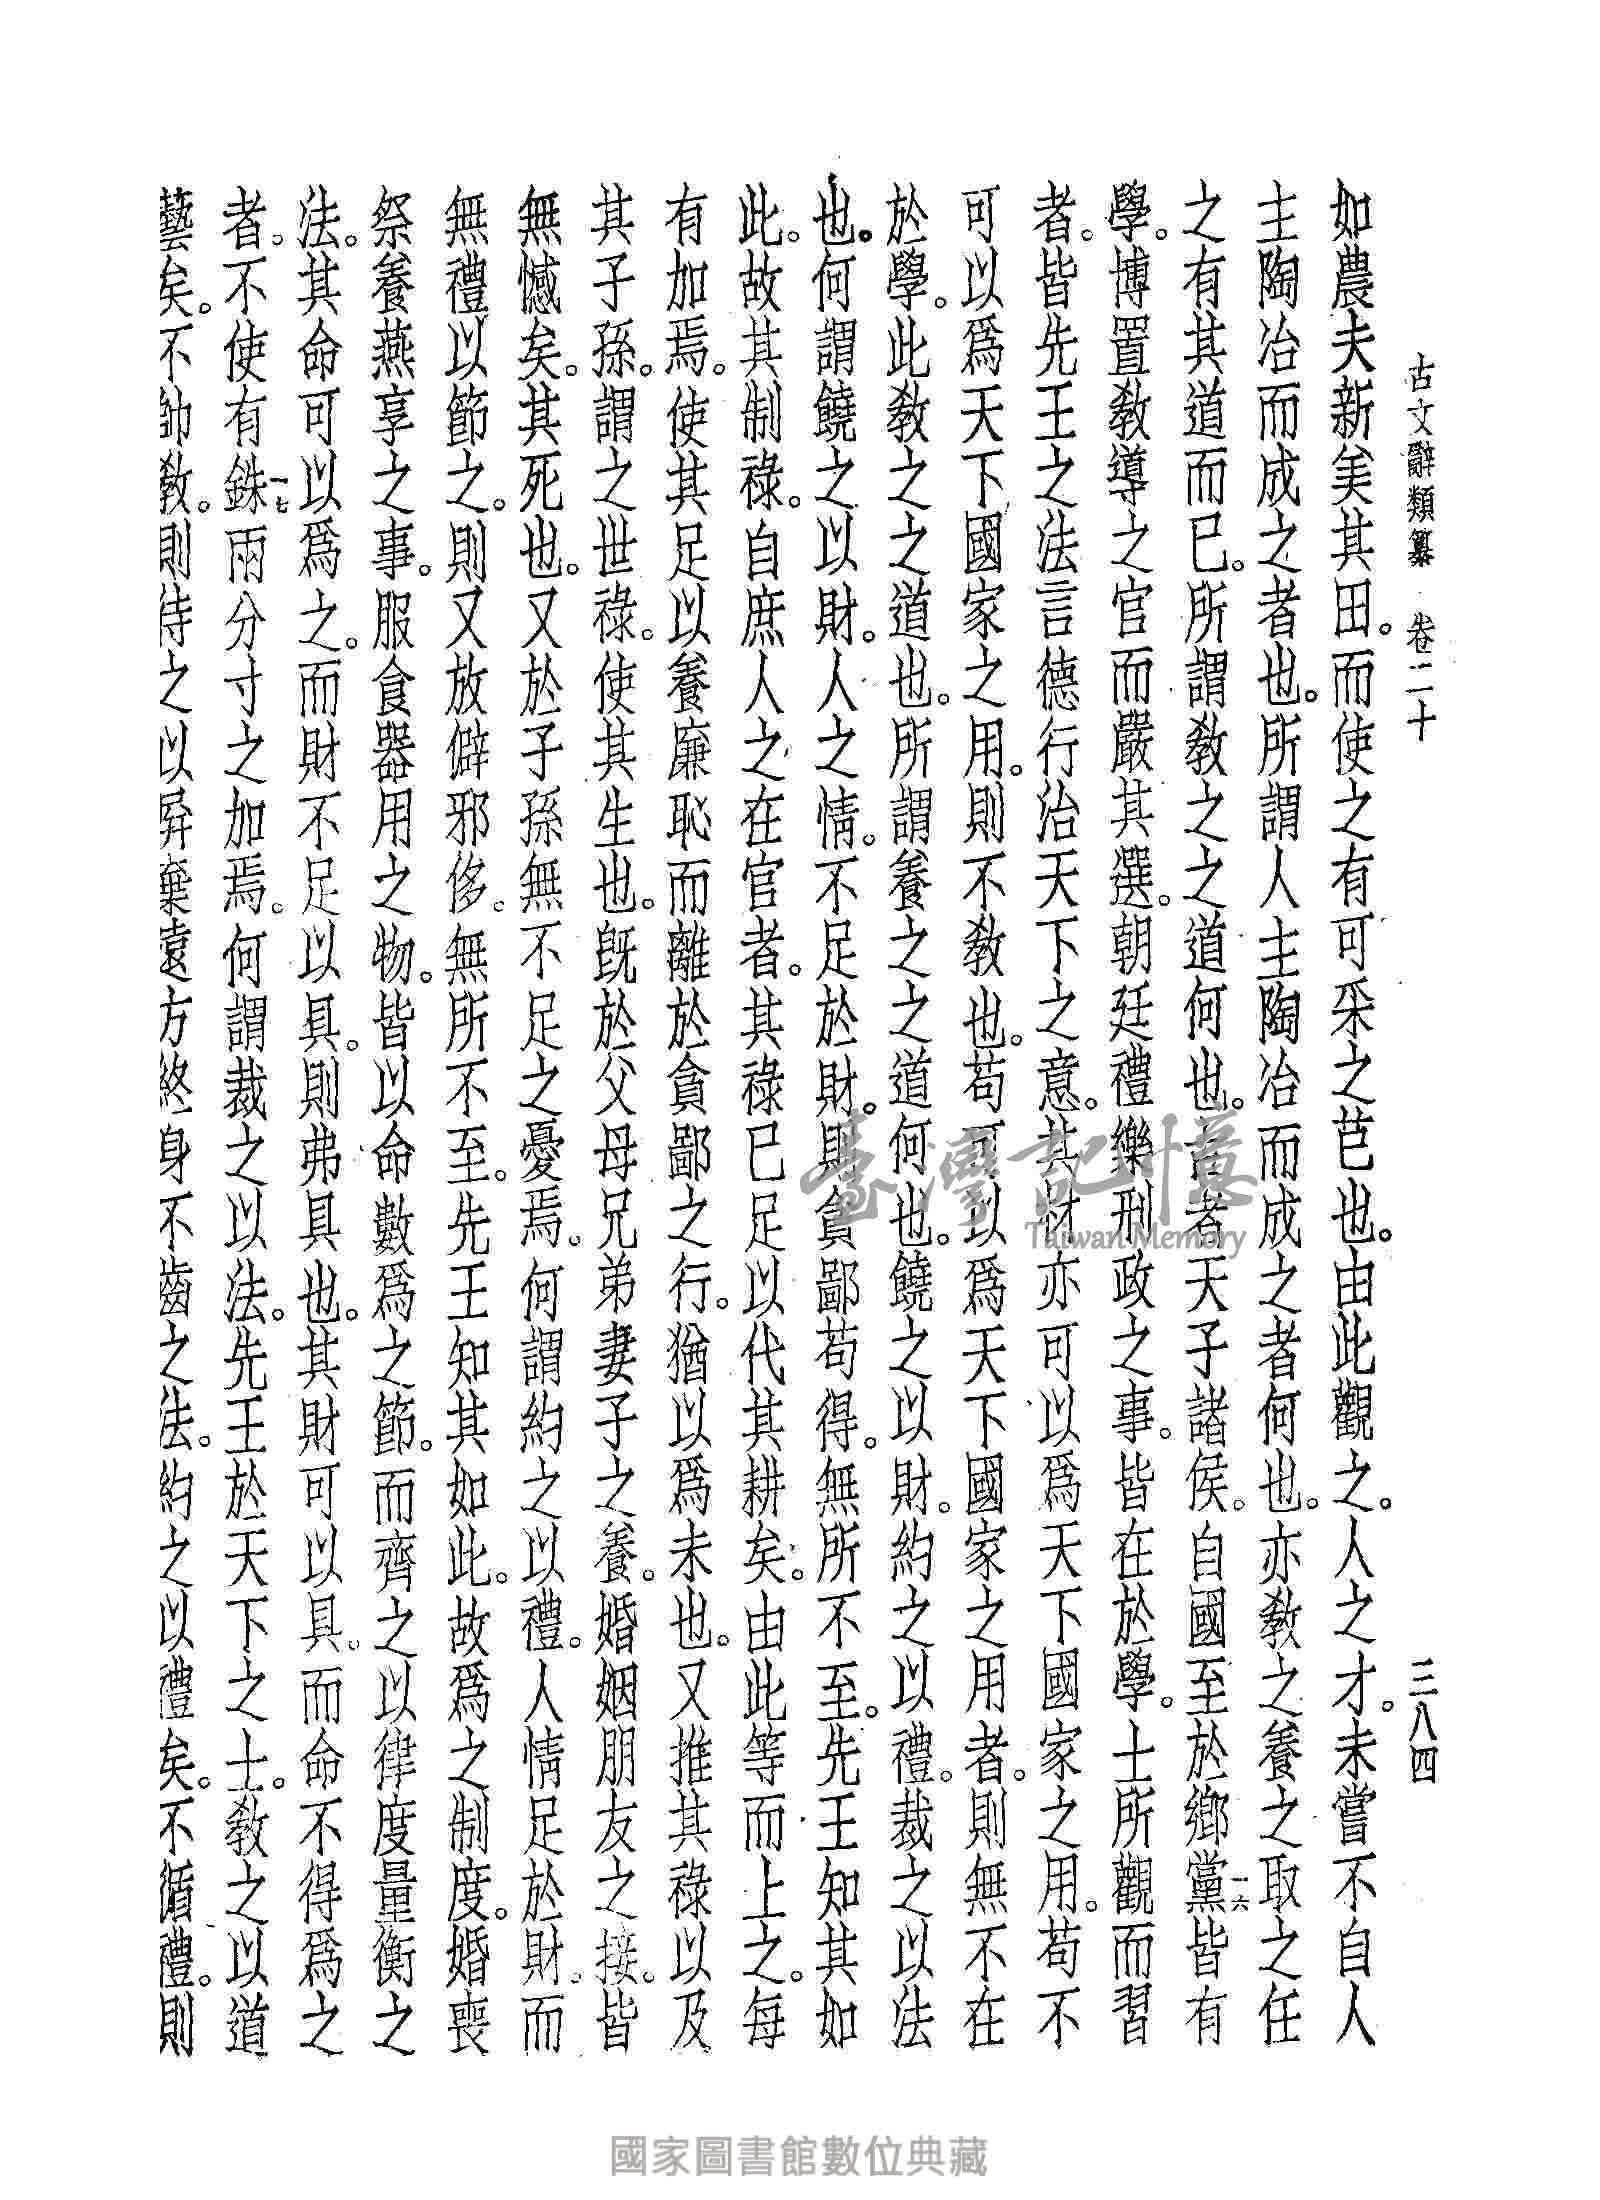 古文辭類纂 卷二十 三八四
如農夫新美其田。而使之有可采之芑也。由此觀之。人之才。未嘗不自人
主陶冶而成之者也。所謂人主陶冶而成之者何也。亦敎之養之取之任
之有其道而已。所謂敎之之道何也。古者天子諸侯。自國至於鄕黨一六皆有
學。博置敎導之官而嚴其選。朝廷禮樂刑政之事。皆在於學。士所觀而習
者。皆先王之法言德行治天下之意。其材亦可以爲天下國家之用。苟不
可以爲天下國家之用。則不敎也。苟可以爲天下國家之用者。則無不在
於學。此敎之之道也。所謂養之之道何也。饒之以財。約之以禮。裁之以法
也。何謂饒之以財。人之情。不足於財。則貪鄙苟得。無所不至。先王知其如
此。故其制祿。自庶人之在官者。其祿已足以代其耕矣。由此等而上之。每
有加焉。使其足以養廉恥而離於貪鄙之行。猶以爲未也。又推其祿以及
其子孫。謂之世祿。使其生也。旣於父母兄弟妻子之養。婚姻朋友之接。皆
無憾矣。其死也。又於子孫無不足之憂焉。何謂約之以禮。人情足於財。而
無禮以節之。則又放僻邪侈。無所不至。先王知其如此。故爲之制度。婚喪
祭養燕享之事。服食器用之物。皆以命數爲之節。而齊之以律度量衡之
法。其命可以爲之。而財不足以具。則弗具也。其財可以具。而命不得爲之
者。不使有銖一七兩分寸之加焉。何謂裁之以法。先王於天下之士。敎之以道
藝矣。不帥敎。則待之以屛棄遠方終身不齒之法。約之以禮矣。不循禮。則
臺灣記憶
Taiwan Memory
國家圖書館數位典藏